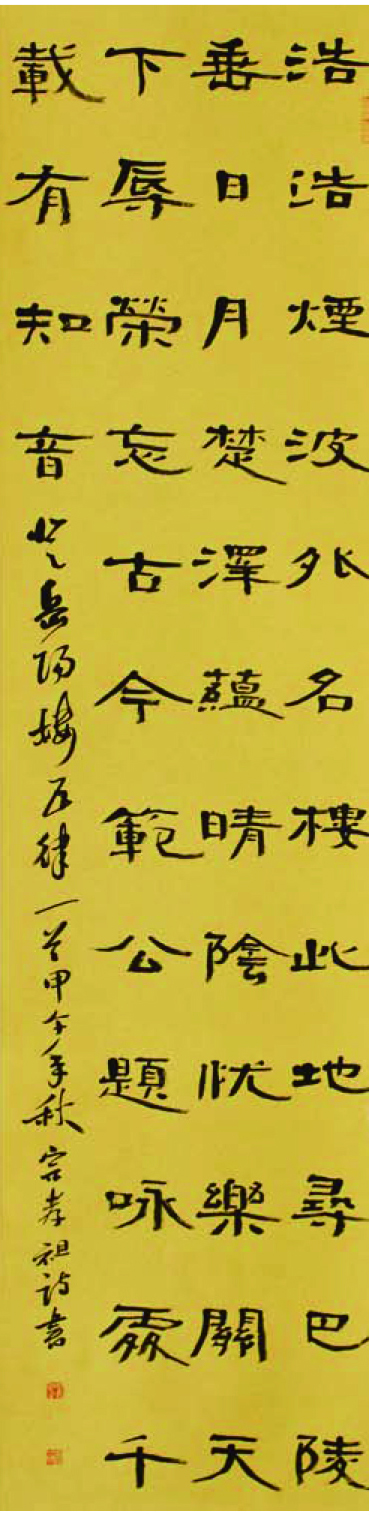 浩浩煙波外名樓此地尋巴陵
垂日月楚澤蘊晴陰忧樂關天
下辱榮忘古今範公題咏處千
載有知音登岳陽樓五律一首甲午年秋宗孝祖詩書